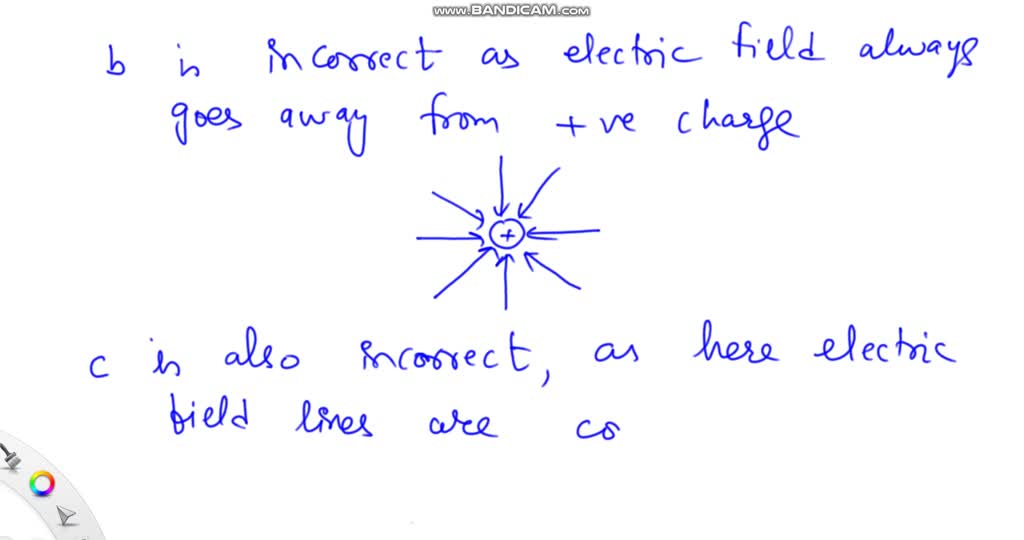 www.BANDICAM.com
b is incorrect as electric field always
goes away from +ve charge
+
c is also incorrect, as here electric
field lines are co